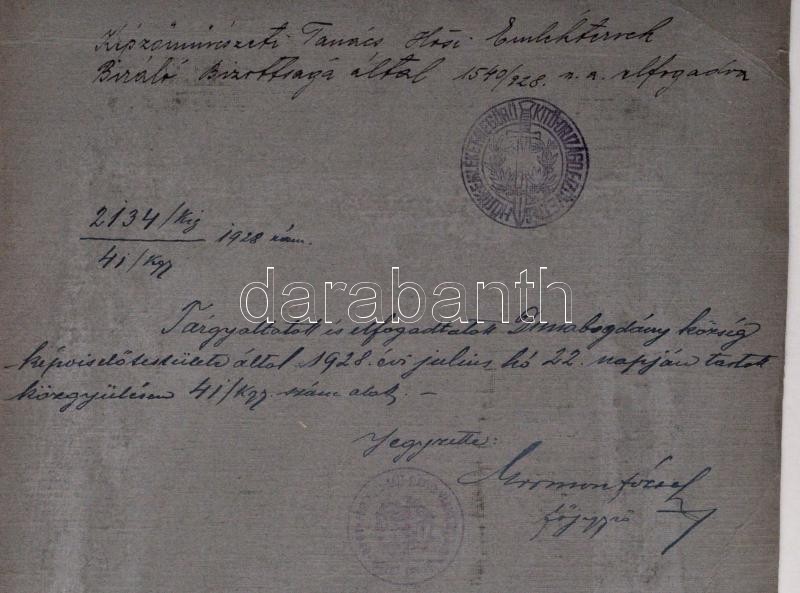 Képzőművészeti Tanács Hősi Emléktervek
Biráló Bizottsága által 1540/928. n. a. elfogadva
2134/Kig
41/Kgy 1928 szám.
darabanth
Tárgyaltatott és elfogadtatott Dunabogdány község
képviselőtestülete által 1928. évi julius hó 22. napján tartott
közgyülésen 41/Kgy. szám alatt. –
Jegyezte:
József
főjegyző